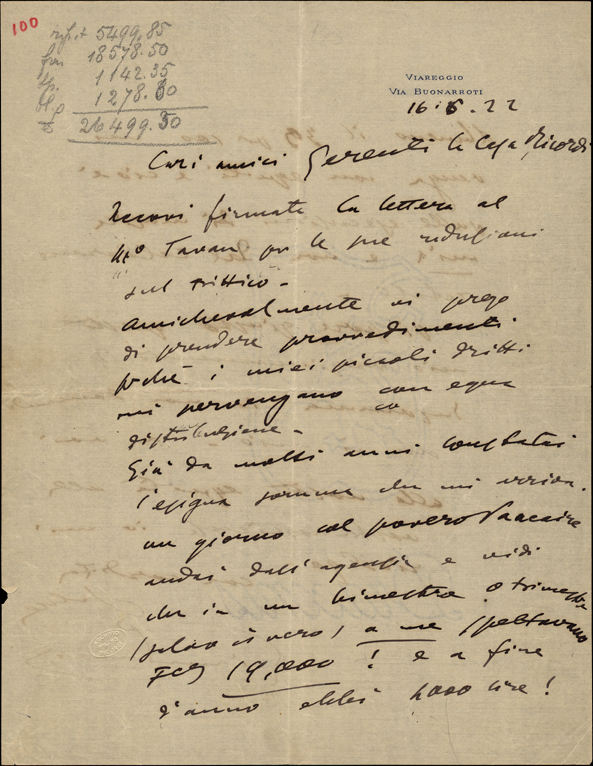 100
5499.85
18578.50
1142.35
1278.80
26499.50
VIAREGGIO
VIA BUONARROTI
16.6.22
Cari amici Gerenti la Casa Ricordi
Eccovi firmate la lettera al
Mo Tavan per le sue riduzioni
sul trittico -
Amichevolmente vi prego
di prendere provvedimenti
perchè i miei piccoli dritti
mi pervengano con equa
distribuzione -
Già da molti anni constatai
l'esigua somma che mi arriva.
un giorno col povero
andai dall'agenzia e vidi
che in un bimestre o trimestre
(salvo il vero) a me spettavano
19,000! e a fine
d'anno ebbi 4000 lire!